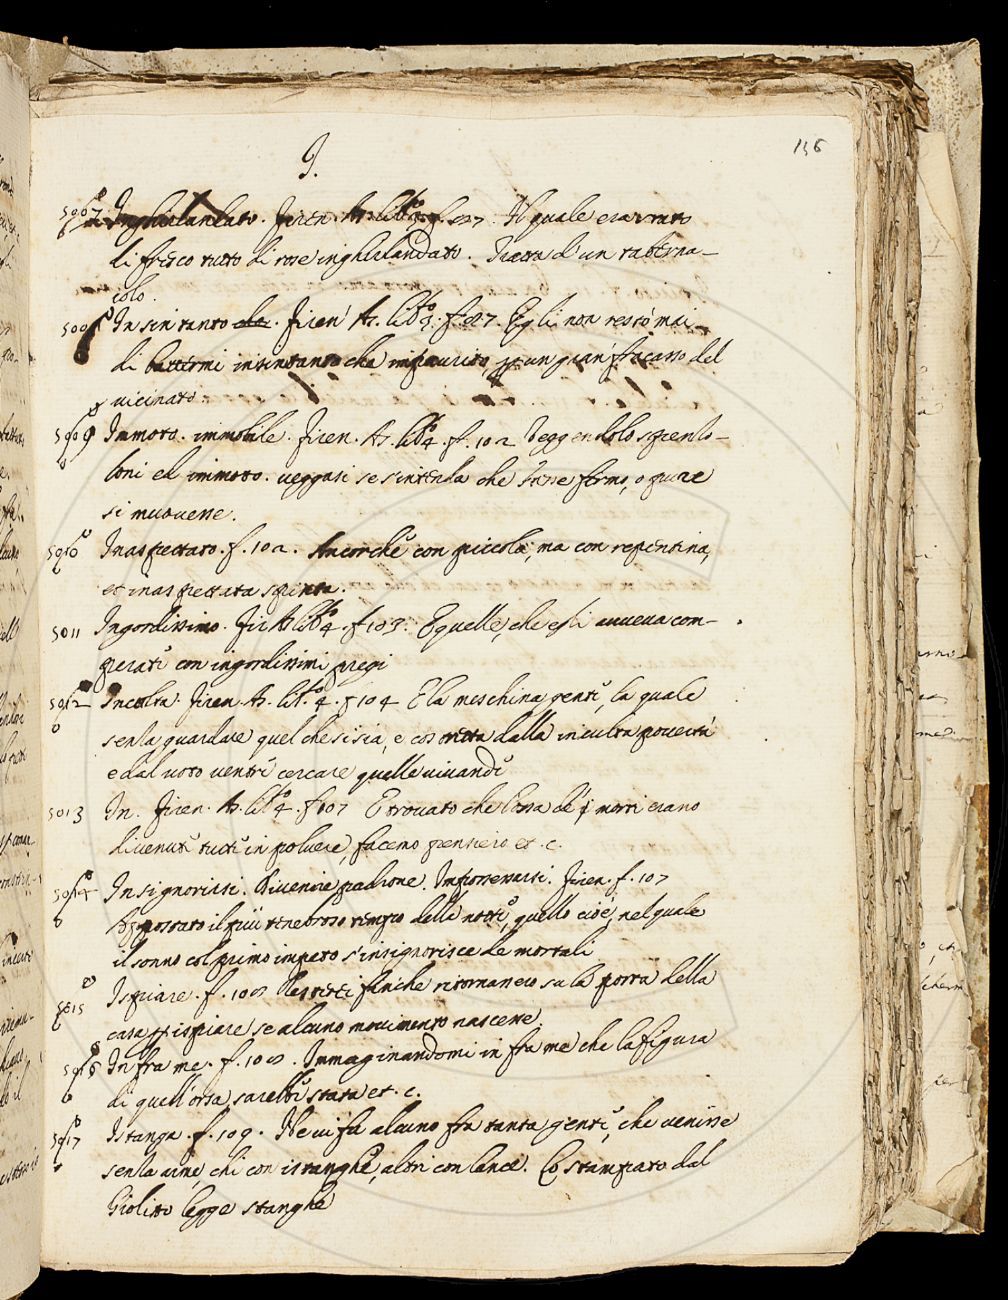 I.
156
5007 Inghirlandato. Firen. As. lib.° 3. f. 87. Il quale era tutto
di fresco tutto di rose inghirlandato. Tratta d'un taberna-
colo.
5008 In sin tanto che. Firen. As. lib.° 3. f. 87. Egli non restò mai
di battermi insin tanto che impaurito, per un gran fracasso del
vicinato.
5009 Immoto. immobile. Firen. As. lib.° 4. f. 102 Veggendolo spento-
loni ed immoto. veggasi se s'intenda che stesse fermo, o pure
si movesse.
5010 Inaspettato. f. 102. Ancorché con piccola, ma con repentina,
et inaspettata spinta.
5011 Ingordissimo. Fir. As. lib.° 4. f. 103. E quelle, che egli aveva com-
perati con ingordissimi pregi
5012 Inculta. Firen. As. lib.° 4. f. 104 E la meschina gente, la quale
senza guardare quel che si sia, è costretta dalla inculta povertà
e dal voto ventre cercare quelle vivande
5013 In. Firen. As. lib.° 4. f. 107 E trovato che l'ossa de' morti erano
divenute tutte in polvere, facemo pensiero et. c.
5014 Insignorirsi. divenire padrone. Impossessarsi. Firen. f. 107
Appostato il più tenebroso tempo della notte, quello cioè, nel quale
il sonno col primo impeto s'insignorisce de mortali
5015 Ispiare. f. 108 finche ritornaron su la porta della
casa per ispiare se alcuno movimento nascesse
5016 In fra me. f. 108. Immaginandomi in fra me che la figura
di quell'orsa sarebbe stata et. c.
5017 Istanga. f. 109. Ne vi fu alcuno fra tanta gente, che venisse
senza arme, chi con istanghe, altri con lance. Lo stampato dal
Giolito legge stanghe